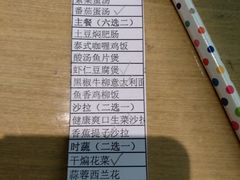 番茄蛋汤 ✓
主餐（六选二）
土豆焖肥肠
泰式咖喱鸡饭
酸汤鱼片饭
虾仁豆腐煲 ✓
黑椒牛柳意大利面
鱼香鸡柳饭
沙拉（二选一）
健康爽口生菜沙拉
香蕉提子沙拉
时蔬（二选一）
干煸花菜 ✓
蒜蓉西兰花